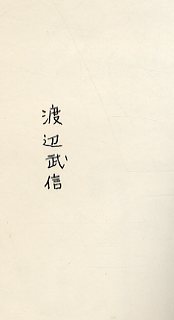 渡辺武信